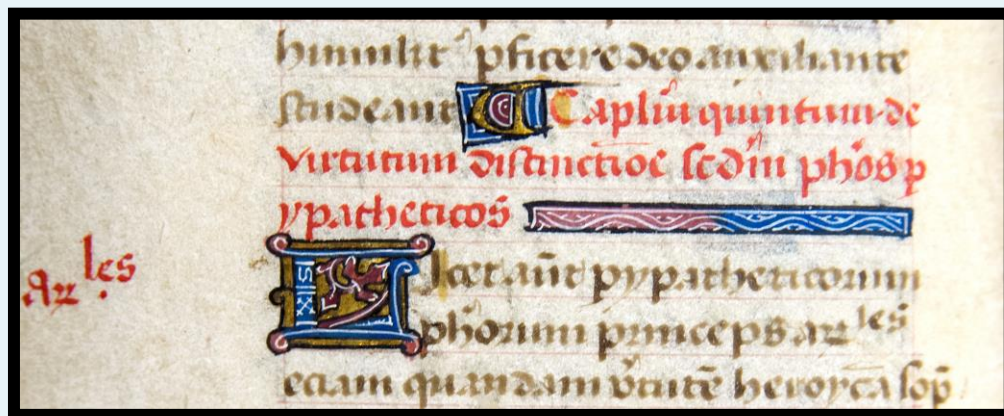 humilit᷑ ꝓficere deo auxiliante
studeant Capl̄m quintum de
virtutum distinctiōe scd̄m ph̄os ꝑ
ypatheticos
Licet aūt pypatheticorum
ph̄orum princeps arꝉes
etiam quandam v̓tutē heroycā sop̄
arꝉes